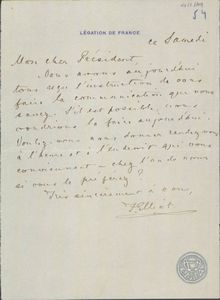 LÉGATION DE FRANCE
ce Samedi
Mon cher Président,
Nous avons aujourd'hui
tous reçu l'instruction de vous
faire la communication que vous
savez. S'il est possible, nous
voudrions la faire aujourd'hui.
Voulez-vous nous donner rendez-vous
à l'heure et à l'endroit qui vous
conviennent – chez l'un de nous
si vous le préférez?
Très sincèrement à vous,